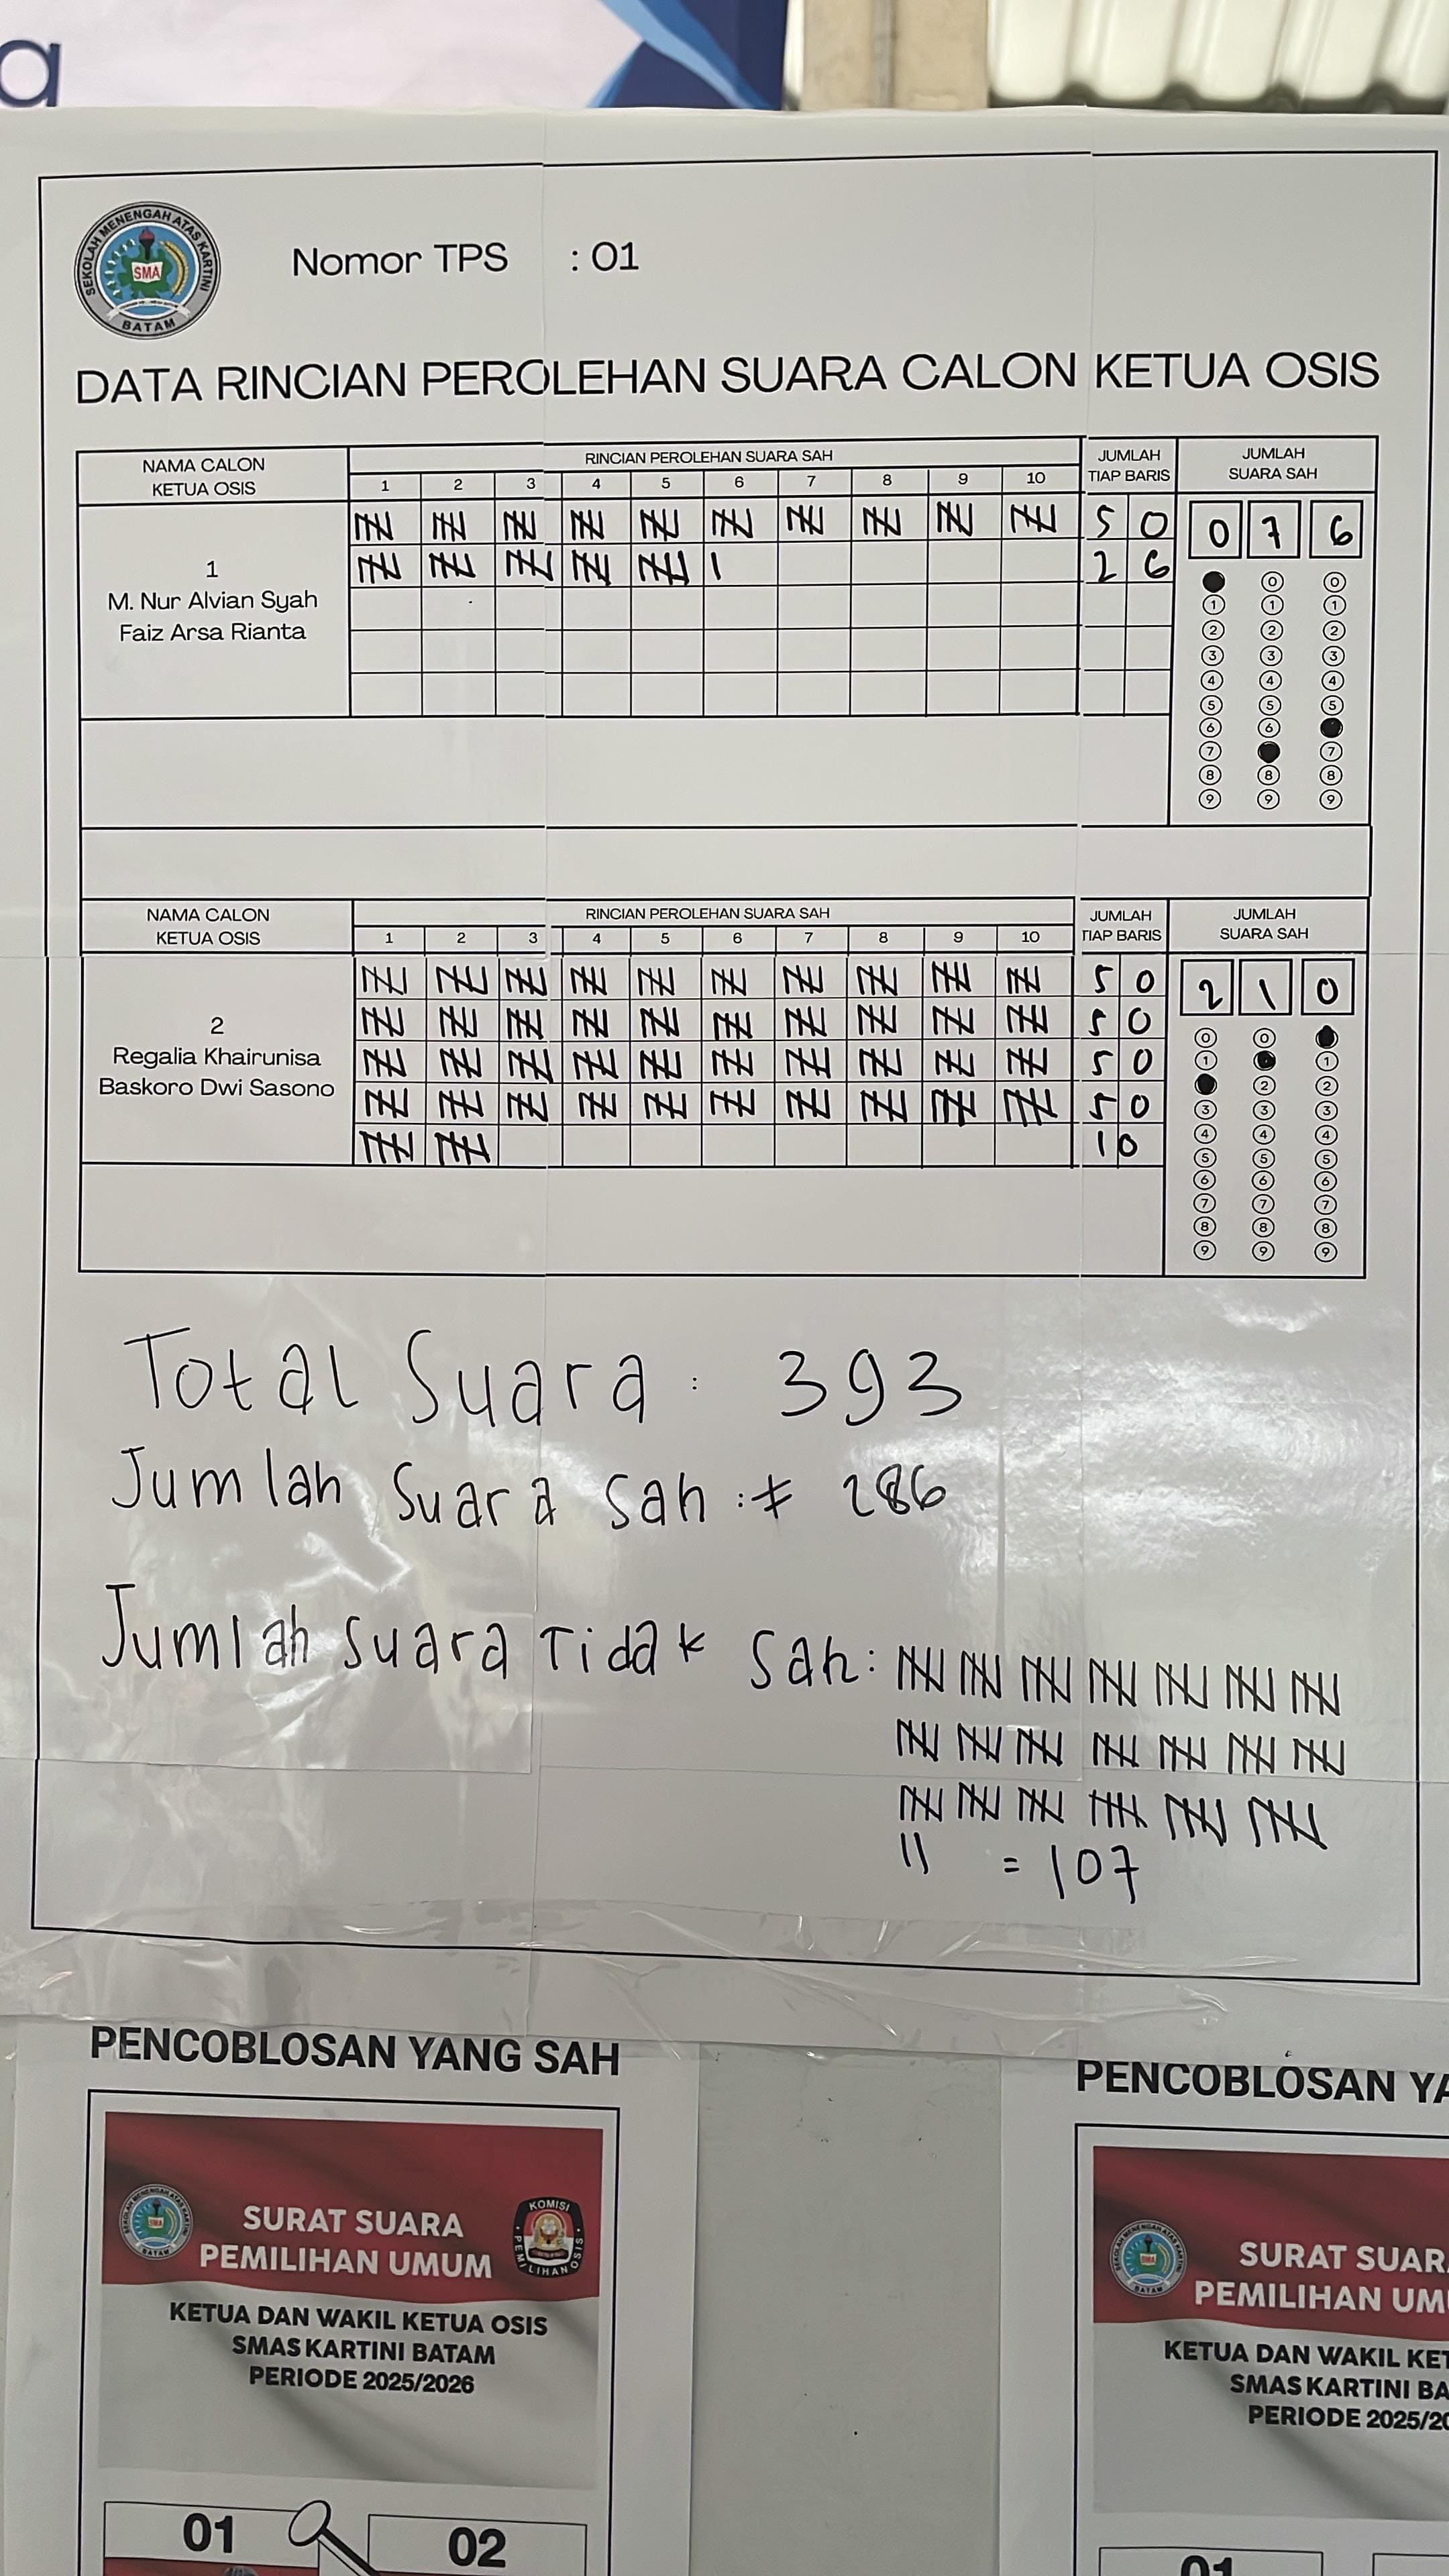 a
SEKOLAH MENENGAH ATAS KARTINI
SMA
BATAM
Nomor TPS : 01
DATA RINCIAN PEROLEHAN SUARA CALON KETUA OSIS
NAMA CALON KETUA OSIS RINCIAN PEROLEHAN SUARA SAH JUMLAH TIAP BARIS JUMLAH SUARA SAH
1 2 3 4 5 6 7 8 9 10
5 0 0 7 6
2 6
1
M. Nur Alvian Syah
Faiz Arsa Rianta
0 0
1 1 1
2 2 2
3 3 3
4 4 4
5 5 5
6 6
7 7
8 8 8
9 9 9
NAMA CALON KETUA OSIS RINCIAN PEROLEHAN SUARA SAH JUMLAH TIAP BARIS JUMLAH SUARA SAH
1 2 3 4 5 6 7 8 9 10
5 0 2 1 0
5 0
5 0
5 0
1 0
2
Regalia Khairunisa
Baskoro Dwi Sasono
0 0
1 1
2 2
3 3 3
4 4 4
5 5 5
6 6 6
7 7 7
8 8 8
9 9 9
Total Suara : 393
Jumlah Suara Sah : ≠ 286
Jumlah suara Tidak Sah:
= 107
PENCOBLOSAN YANG SAH
SURAT SUARA
PEMILIHAN UMUM
KOMISI PEMILIHAN OSIS
KETUA DAN WAKIL KETUA OSIS
SMAS KARTINI BATAM
PERIODE 2025/2026
01 02
PENCOBLOSAN YA
SURAT SUAR
PEMILIHAN UM
KETUA DAN WAKIL KET
SMAS KARTINI BA
PERIODE 2025/20
01